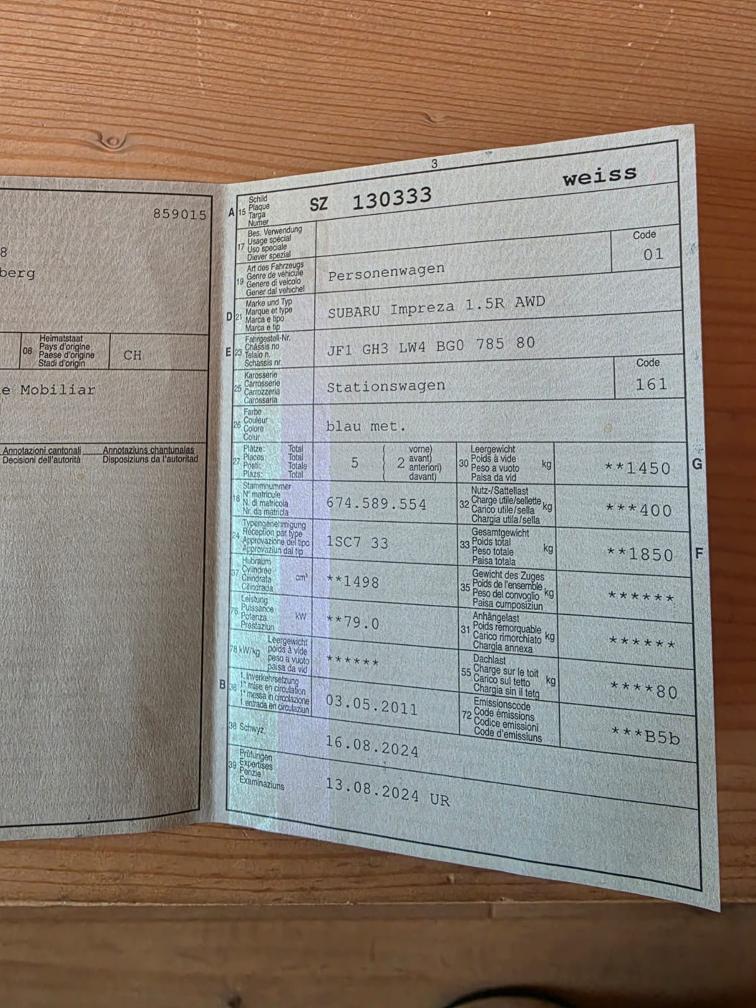 859015
8
berg
08 Heimatstaat
Pays d'origine
Paese d'origine
Stadi d'origin
CH
e Mobiliar
Annotazioni cantonali Annotaziuns chantunalas
Decisioni dell'autorità Disposiziuns da l'autoritad
3
A 15 Schild
Plaque
Targa
Numer
SZ 130333 weiss
17 Bes. Verwendung
Usage spécial
Uso speciale
Diever spezial
19 Art des Fahrzeugs
Genre de véhicule
Genere di veicolo
Gener dal vehichel
Personenwagen
Code
01
D 21 Marke und Typ
Marque et type
Marca e tipo
Marca e tip
SUBARU Impreza 1.5R AWD
E 23 Fahrgestell-Nr.
Châssis no
Telaio n.
Schassis nr.
JF1 GH3 LW4 BG0 785 80
25 Karosserie
Carrosserie
Carrozzeria
Carossaria
Stationswagen
Code
161
26 Farbe
Couleur
Colore
Colur
blau met.
27 Plätze: Total
Places: Total
Posti: Totale
Plazs: Total
5
2
vorne)
avant)
anteriori)
davant)
30 Leergewicht
Poids à vide
Peso a vuoto
Paisa da vid
kg
**1450
G
18 Stammnummer
N° matricule
N. di matricola
Nr. da matricla
674.589.554
32 Nutz-/Sattellast
Charge utile/sellette
Carico utile/sella
Chargia utila/sella
kg
***400
24 Typengenehmigung
Réception par type
Approvazione del tipo
Approvaziun dal tip
1SC7 33
33 Gesamtgewicht
Poids total
Peso totale
Paisa totala
kg
**1850
F
37 Hubraum
Cylindrée
Cilindrata
Cilindrada
cm³
**1498
35 Gewicht des Zuges
Poids de l'ensemble
Peso del convoglio
Paisa cumposiziun
kg
******
76 Leistung
Puissance
Potenza
Prestaziun
kW
**79.0
31 Anhängelast
Poids remorquable
Carico rimorchiato
Chargia annexa
kg
******
78 kW/kg Leergewicht
poids à vide
peso a vuoto
paisa da vid
******
55 Dachlast
Charge sur le toit
Carico sul tetto
Chargia sin il tetg
kg
****80
B 36 1. Inverkehrsetzung
1re mise en circulation
1a messa in circolazione
1. entrada en circulaziun
03.05.2011
72 Emissionscode
Code émissions
Codice emissioni
Code d'emissiuns
***B5b
38 Schwyz,
16.08.2024
39 Prüfungen
Expertises
Perizie
Examinaziuns
13.08.2024 UR